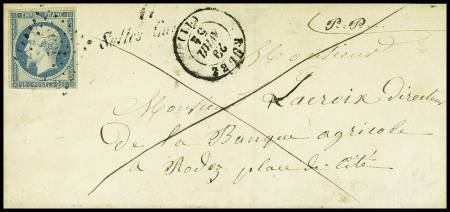 EMPIRE FRANC.
11
Salles
P.P.
RODEZ
29
54
(11)
Monsieur
Monsieur Lacroix directeur
de la Banque agricole
à Rodez place de Cité